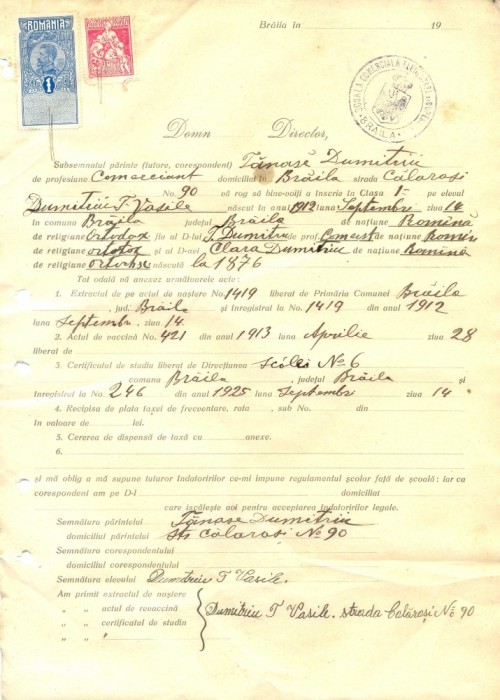 Brăila în 19
ROMANIA
1
ȘCOALA COMERCIALĂ
BRĂILA
Domn Director,
Subsemnatul părinte (tutore, corespondent) Tănase Dumitriu
de profesiune Comerciant domiciliat în Brăila strada Călărași
No. 90 vă rog să bine-voiți a înscrie în Clasa I- pe elevul
Dumitriu T. Vasile născut în anul 1912 luna Septembrie ziua 14
în comuna Brăila județul Brăila de națiune Română
de religiune Ortodox fiu al D-lui T. Dumitru de prof. Comerst de națiune Român
de religiune ortotox și al D-nei Clara Dumitriu de națiune Romină
de religiune ortohsc născută la 1876
Tot odată vă anexez următoarele acte:
1. Extractul de pe actul de naștere No 1419 liberat de Primăria Comunei Brăila
jud. Brăila și înregistrat la No. 1419 din anul 1912
luna Septembr. ziua 14
2. Actul de vaccină No. 421 din anul 1913 luna Aprilie ziua 28
liberat de
3. Certificatul de studiu liberat de Direcțiunea Scólei No 6
comuna Brăila , județul Brăila și
înregistrat la No. 246 din anul 1925 luna Septembr ziua 14
4. Recipisa de plata taxei de frecventare, rata , sub No. din
în valoare de lei.
5. Cererea de dispensă de taxă cu anexe.
6.
și mă oblig a mă supune tuturor îndatoririlor ce-mi impune regulamentul școlar față de școală: iar ca
corespondent am pe D-l domiciliat
care iscălește aci pentru acceptarea îndatoririlor legale.
Semnătura părintelui Tănase Dumitriu
domiciliul părintelui Str Călărași No 90
Semnătura corespondentului
domiciliul corespondentului
Semnătura elevului Dumitriu T Vasile.
Am primit extractul de naștere
„ „ actul de revaccină Dumitriu T Vasile. strada Călărași No 90
„ „ certificatul de studiu
„ „